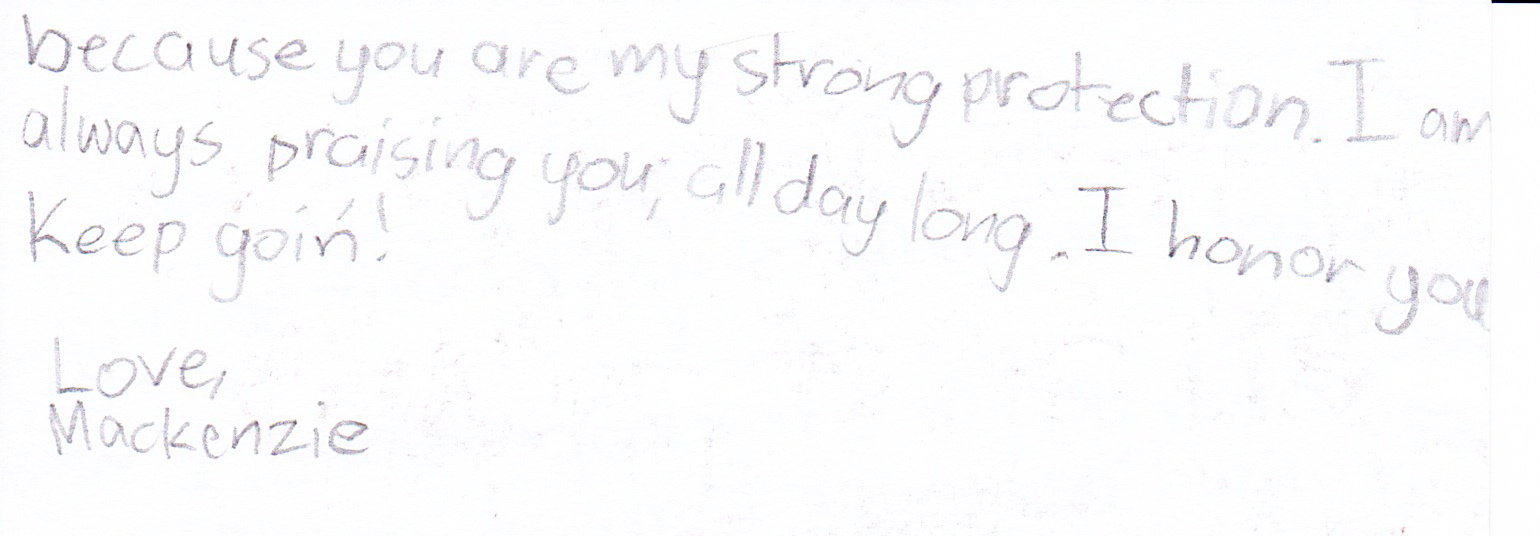 because you are my strong protection. I am
always praising you, all day long. I honor you
Keep goin'!
Love,
Mackenzie